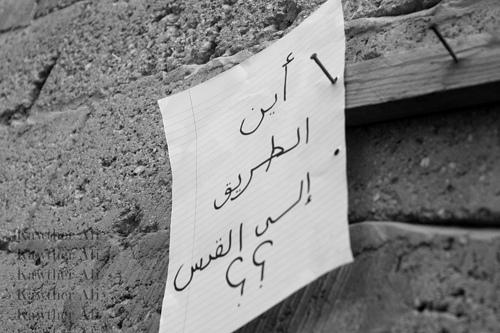 أين
الطريق
إلى القدس
؟؟
Kawther Ali
Kawther Ali
Kawther Ali
Kawther Ali
Kawther Ali